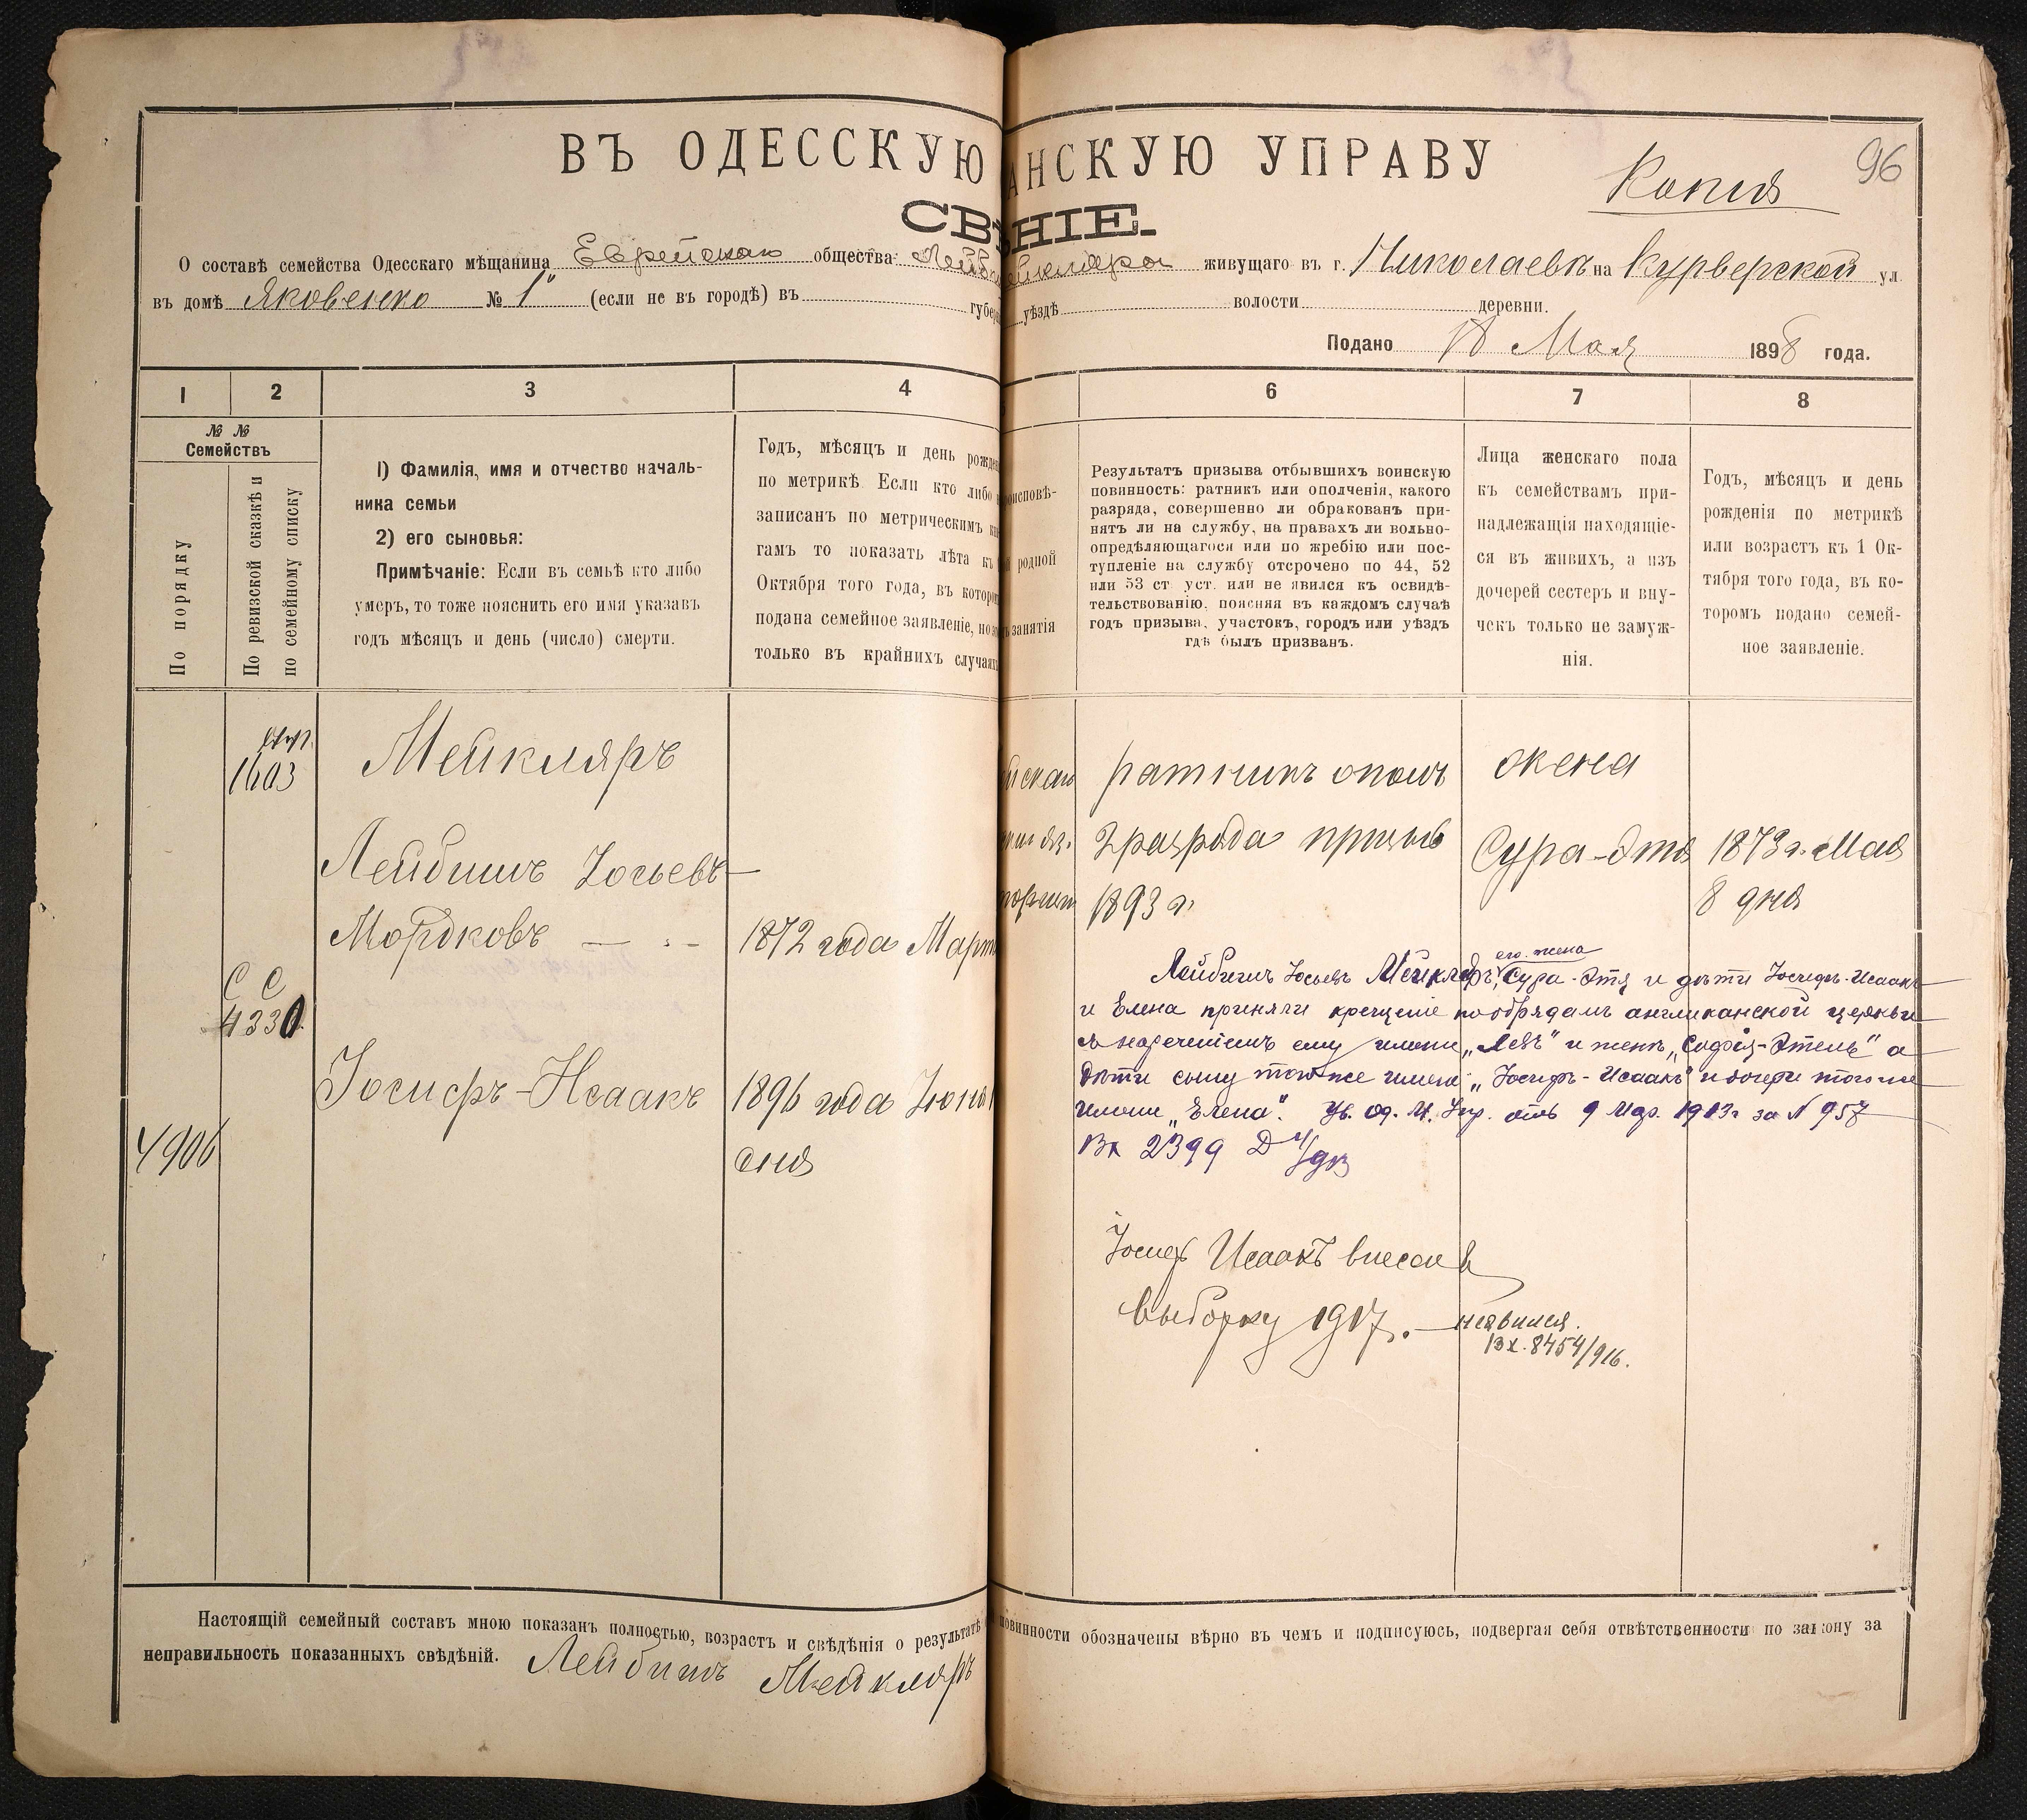 ВЪ ОДЕССКУЮ АНСКУЮ УПРАВУ
Копия
96
СВѢНІЕ.
О составѣ семейства Одесскаго мѣщанина Еврейскаго общества Лейб ейкляра живущаго въ г. Николаевѣ на Курьерской ул
въ домѣ Яковенко № 1 (если не въ городѣ) въ губер уѣздѣ волости деревни.
Подано 18 Мая 1898 года.
1 2 3 4 6 7 8
№ №
Семействъ
По порядку
По ревизской сказкѣ и
по семейному списку
1) Фамилія, имя и отчество началь-
ника семьи
2) его сыновья:
Примѣчаніе: Если въ семьѣ кто либо
умеръ, то тоже пояснить его имя указавъ
годъ мѣсяцъ и день (число) смерти.
Годъ, мѣсяцъ и день рожден
по метрикѣ Если кто либо н
записанъ по метрическимъ кни
гамъ то показать лѣта къ 1
Октября того года, въ которо
подана семейное заявленіе, но э
только въ крайнихъ случаях
роисповѣ-
й родной
ъ занятія
Результатъ призыва отбывшихъ воинскую
повинность: ратникъ или ополченія, какого
разряда, совершенно ли обракованъ при-
нятъ ли на службу, на правахъ ли вольно-
опредѣляющагося или по жребію или пос-
тупленіе на службу отсрочено по 44, 52
или 53 ст уст. или не явился къ освидѣ-
тельствованію, поясняя въ каждомъ случаѣ
годъ призыва, участокъ, городъ или уѣздъ
гдѣ былъ призванъ.
Лица женскаго пола
къ семействамъ при-
надлежащія находящіе-
ся въ живихъ, а изъ
дочерей сестеръ и вну-
чекъ только не замуж-
нія.
Годъ, мѣсяцъ и день
рожденія по метрикѣ
или возрастъ къ 1 Ок-
тября того года, въ ко-
торомъ подано семей-
ное заявленіе.
1603
Мейкляръ
Лейбишъ Іосьевъ
Мордковъ — 1872 года Март
С С
4330
Іосифъ-Исаакъ 1896 года Іюня 1
дня
4906
йскаго
ратникъ ополч
2 разряда призыв
1893 г.
жена
Сура-Этя 1873 г. Мая
8 дня
его жена
Лейбишъ Іосьевъ Мейкляръ, Сура-Этя и дѣти Іосифъ-Исаакъ
и Елена приняли крещеніе по обрядамъ англиканской церкви
съ нареченіемъ ему имени „Левъ" и женѣ „Софія-Этель" а
дѣти сыну тоже имени „Іосифъ-Исаакъ" и дочери тогоже
имени „Елена". Ув. Од. М. Упр. отъ 9 Мар. 1913 г за № 957
Вх 2399
Іосиф Исаакъ внесен в
выборку 1917. — неявился.
Вх. 8454/916.
Настоящій семейный составъ мною показанъ полностью, возрастъ и свѣдѣнія о результатѣ повинности обозначены вѣрно въ чемъ и подписуюсь, подвергая себя отвѣтственности по закону за
неправильность показанныхъ свѣдѣній. Лейбишъ Мейкляръ